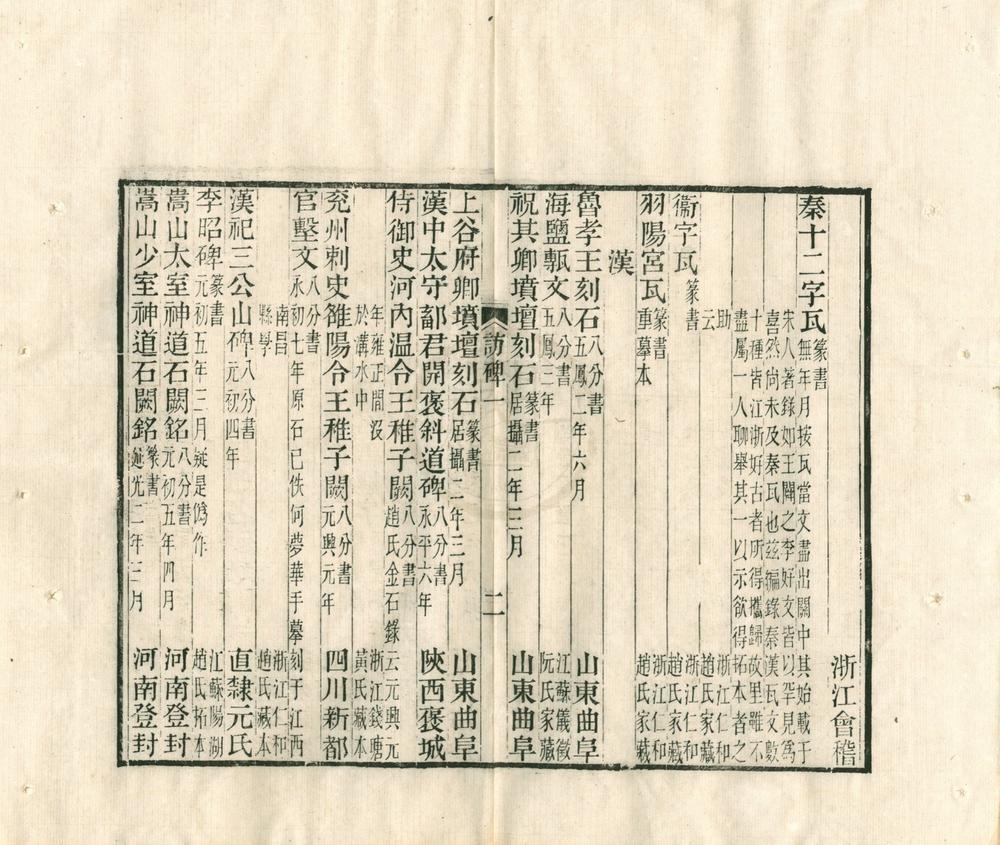 浙江會稽
秦十二字瓦 篆書
無年月按瓦當文盡出關中其始載于
宋人著錄如王闢之李好文皆以罕見為
喜然尚未及秦瓦也茲編錄秦漢瓦文數
十種皆江浙好古者所得攜歸故里雖不
盡屬一人聊舉其一以示欲得拓本者之
助 浙江仁和
云 趙氏家藏
衞字瓦 篆書 浙江仁和趙氏家藏
羽陽宮瓦 篆書重摹本 浙江仁和趙氏家藏
漢
魯孝王刻石 八分書五鳳二年六月 山東曲阜
海鹽甎文 八分書五鳳三年 江蘇儀徵阮氏家藏
祝其卿墳壇刻石 篆書居攝二年三月 山東曲阜
訪碑一 二
上谷府卿墳壇刻石 篆書居攝二年三月 山東曲阜
漢中太守鄐君開褒斜道碑 八分書永平六年 陝西褒城
侍御史河內温令王稚子闕 八分書趙氏金石錄云元興元
年雍正間沒於溝水中 浙江錢塘黃氏藏本
兗州刺史雒陽令王稚子闕 八分書元興元年 四川新都
官墼文 八分書永初七年原石已佚何夢華手摹刻于江西
南昌縣學 浙江仁和趙氏藏本
漢祀三公山碑 八分書元初四年 直隸元氏
李昭碑 篆書元初五年三月疑是僞作 江蘇陽湖趙氏拓本
嵩山太室神道石闕銘 八分書元初五年四月 河南登封
嵩山少室神道石闕銘 篆書延光二年三月 河南登封